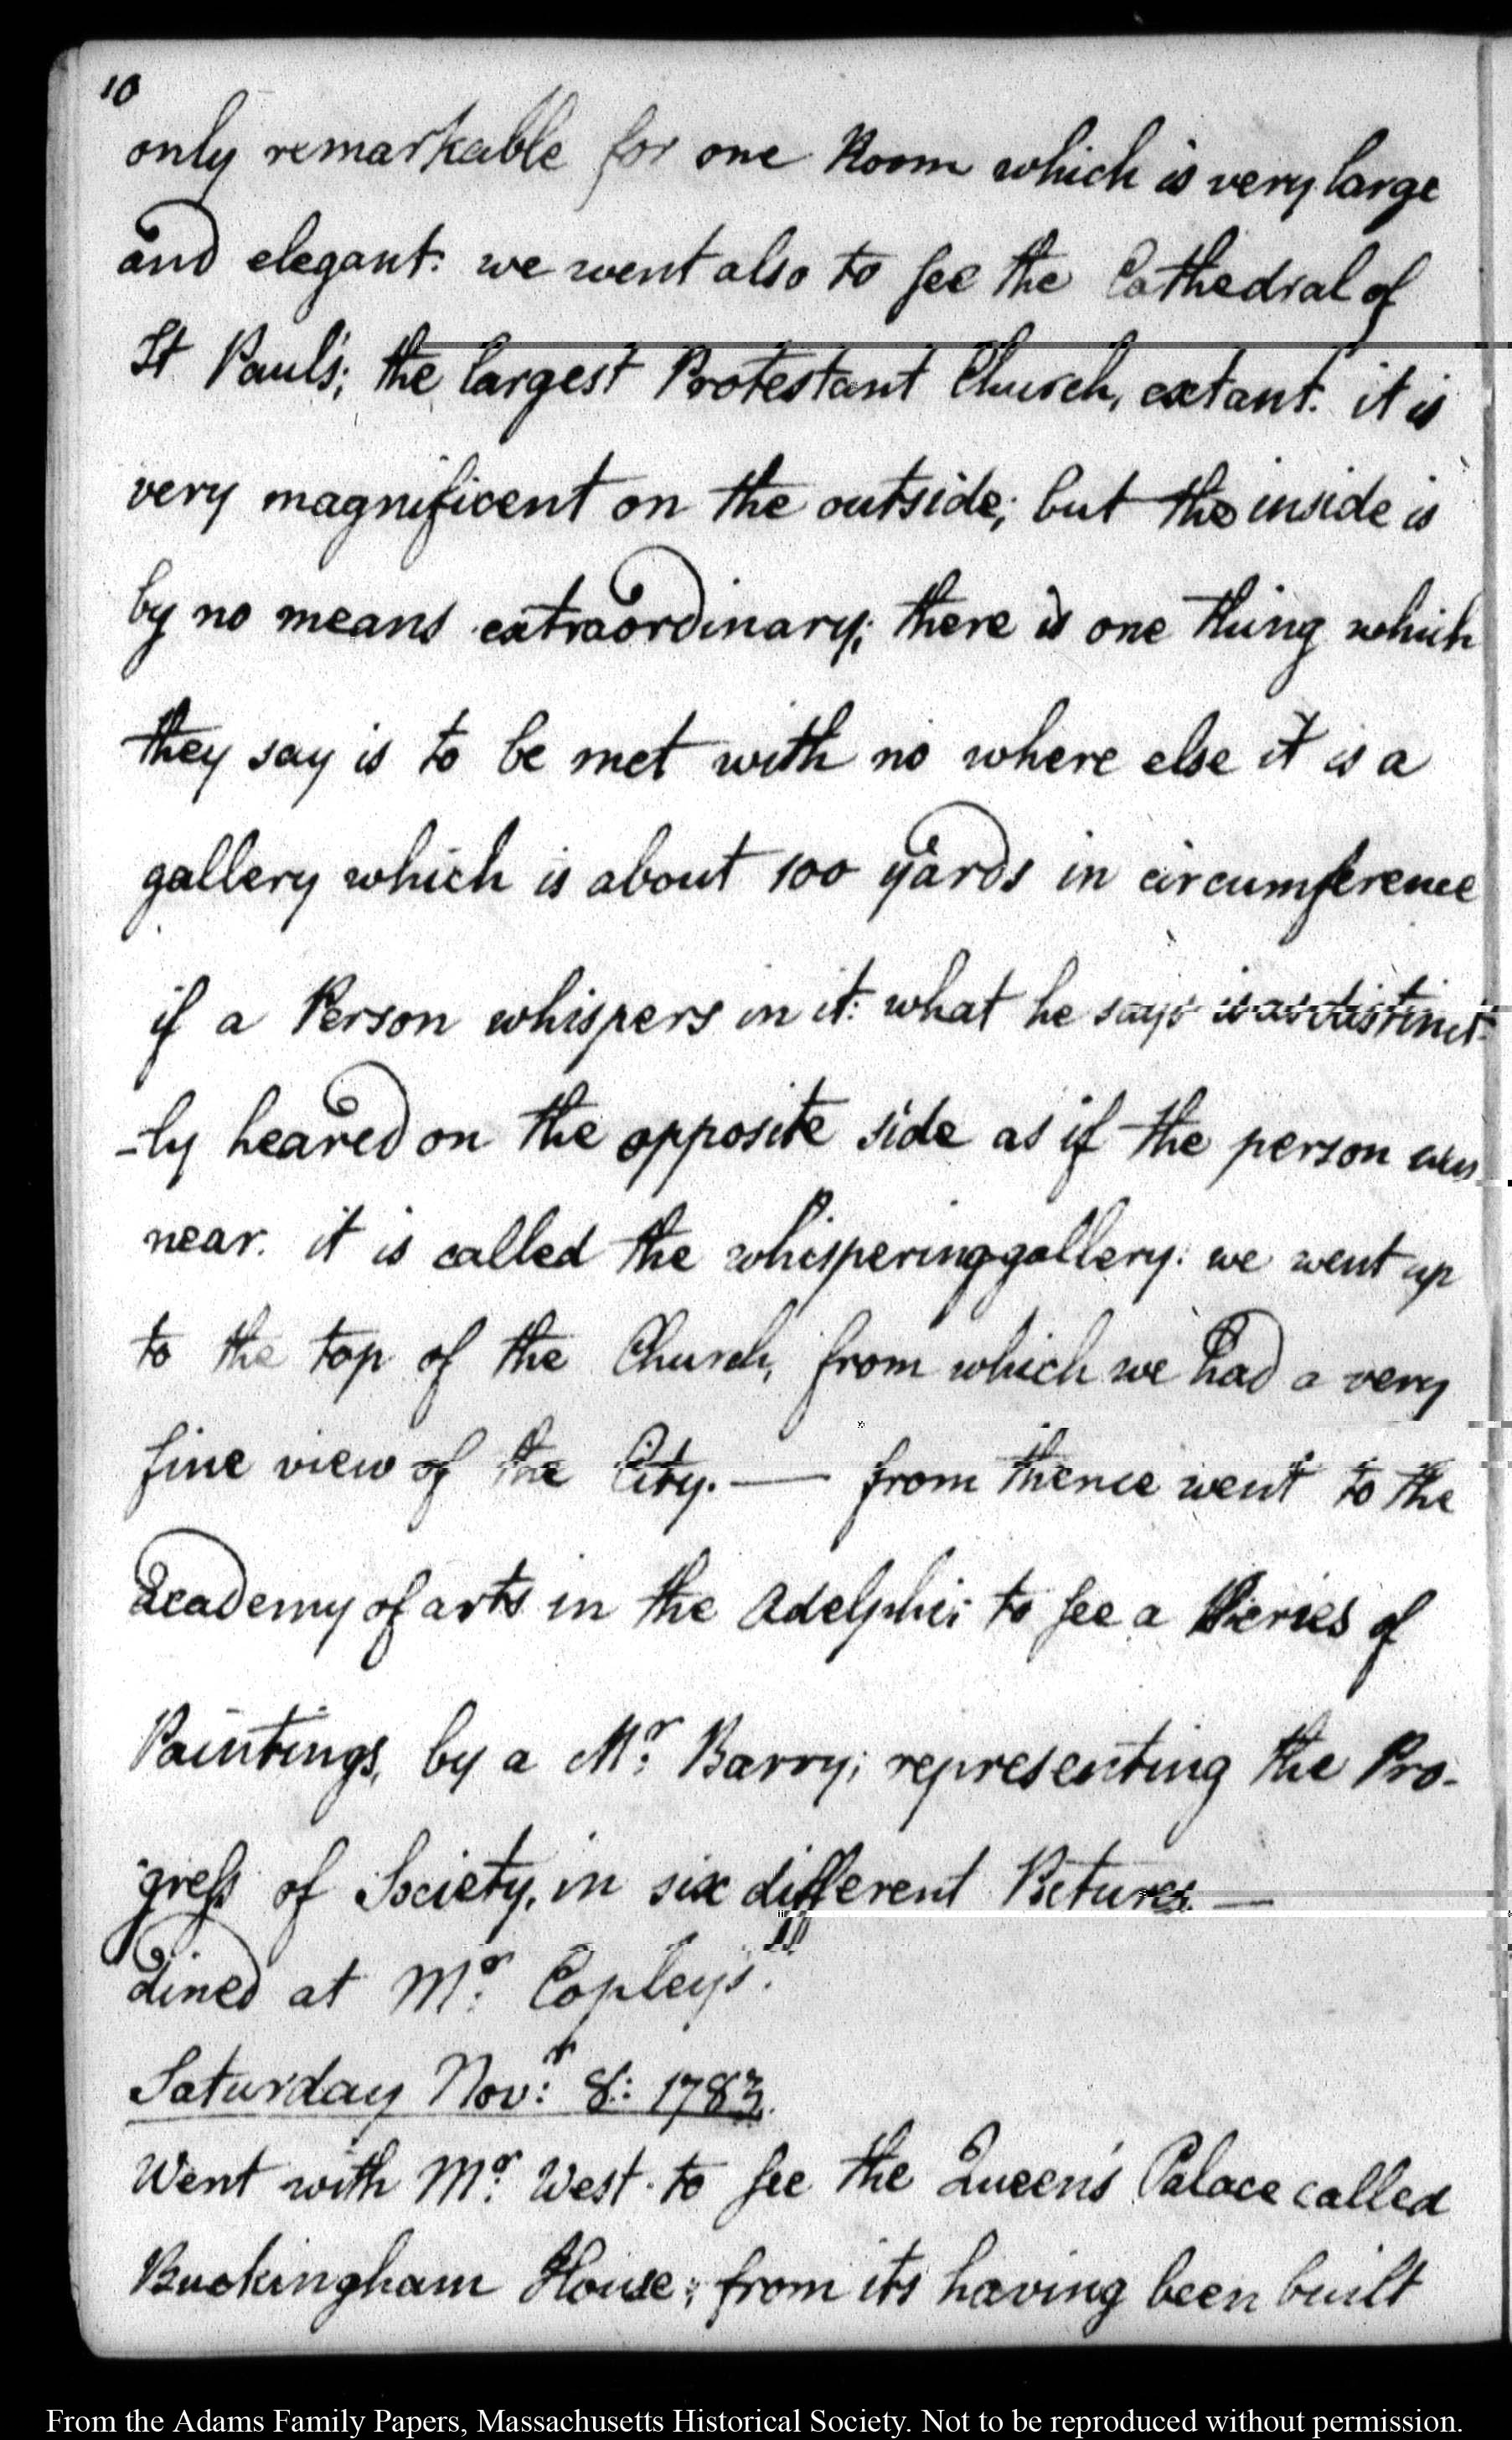 10
only remarkable for one Room which is very large
and elegant: we went also to see the Cathedral of
St Paul's; the largest Protestant Church, extant. it is
very magnificent on the outside; but the inside is
by no means extraordinary; there is one thing which
they say is to be met with no where else it is a
gallery which is about 100 yards in circumference
if a Person whispers in it: what he says is as distinct-
-ly heared on the opposite side as if the person was
near. it is called the whispering gallery: we went up
to the top of the Church, from which we had a very
fine view of the City. — from thence went to the
Academy of arts in the Adelphi; to see a Series of
Paintings, by a Mr: Barry; representing the Pro-
gress of Society, in six different Pictures. —
dined at Mr: Copley's.
Saturday Novr: 8: 1783.
Went with Mr: West. to see the Queen's Palace called
Buckingham House; from its having been built
From the Adams Family Papers, Massachusetts Historical Society. Not to be reproduced without permission.